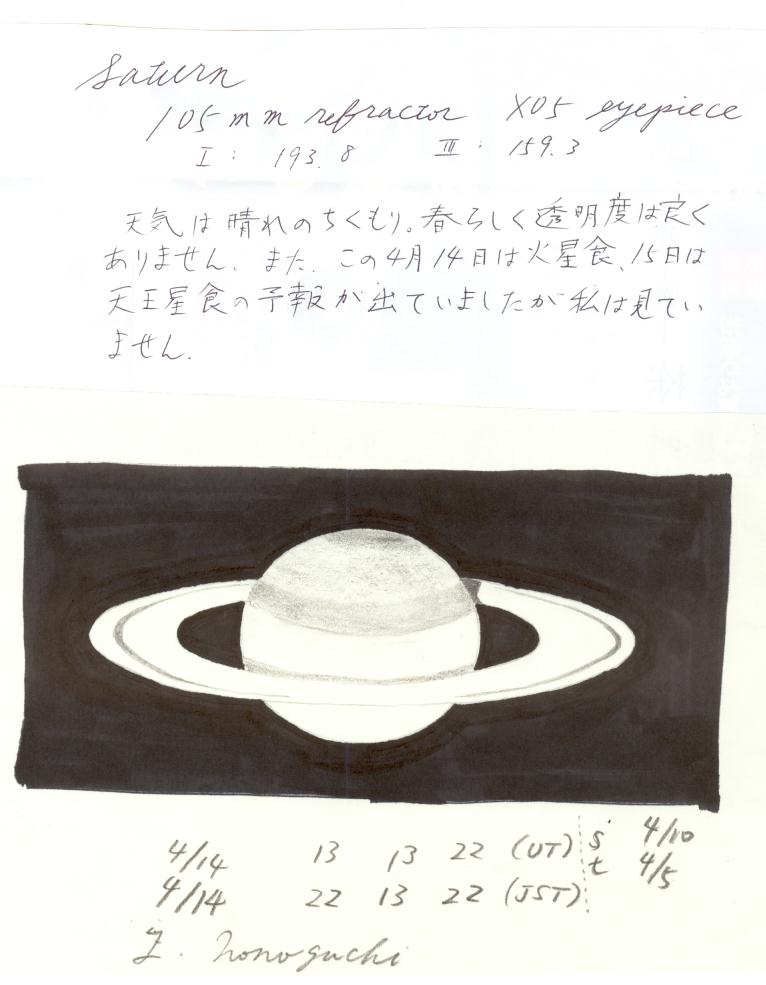 Saturn
105mm refractor XO5 eyepiece
I : 193.8 III : 159.3
天気は晴れのちくもり。春らしく透明度は良く
ありません。また、この4月14日は火星食、15日は
天王星食の予報が出ていましたが私は見てい
ません。
4/14 13 13 22 (UT) s 4/10
t 4/5
4/14 22 13 22 (JST)
I. Nonoguchi